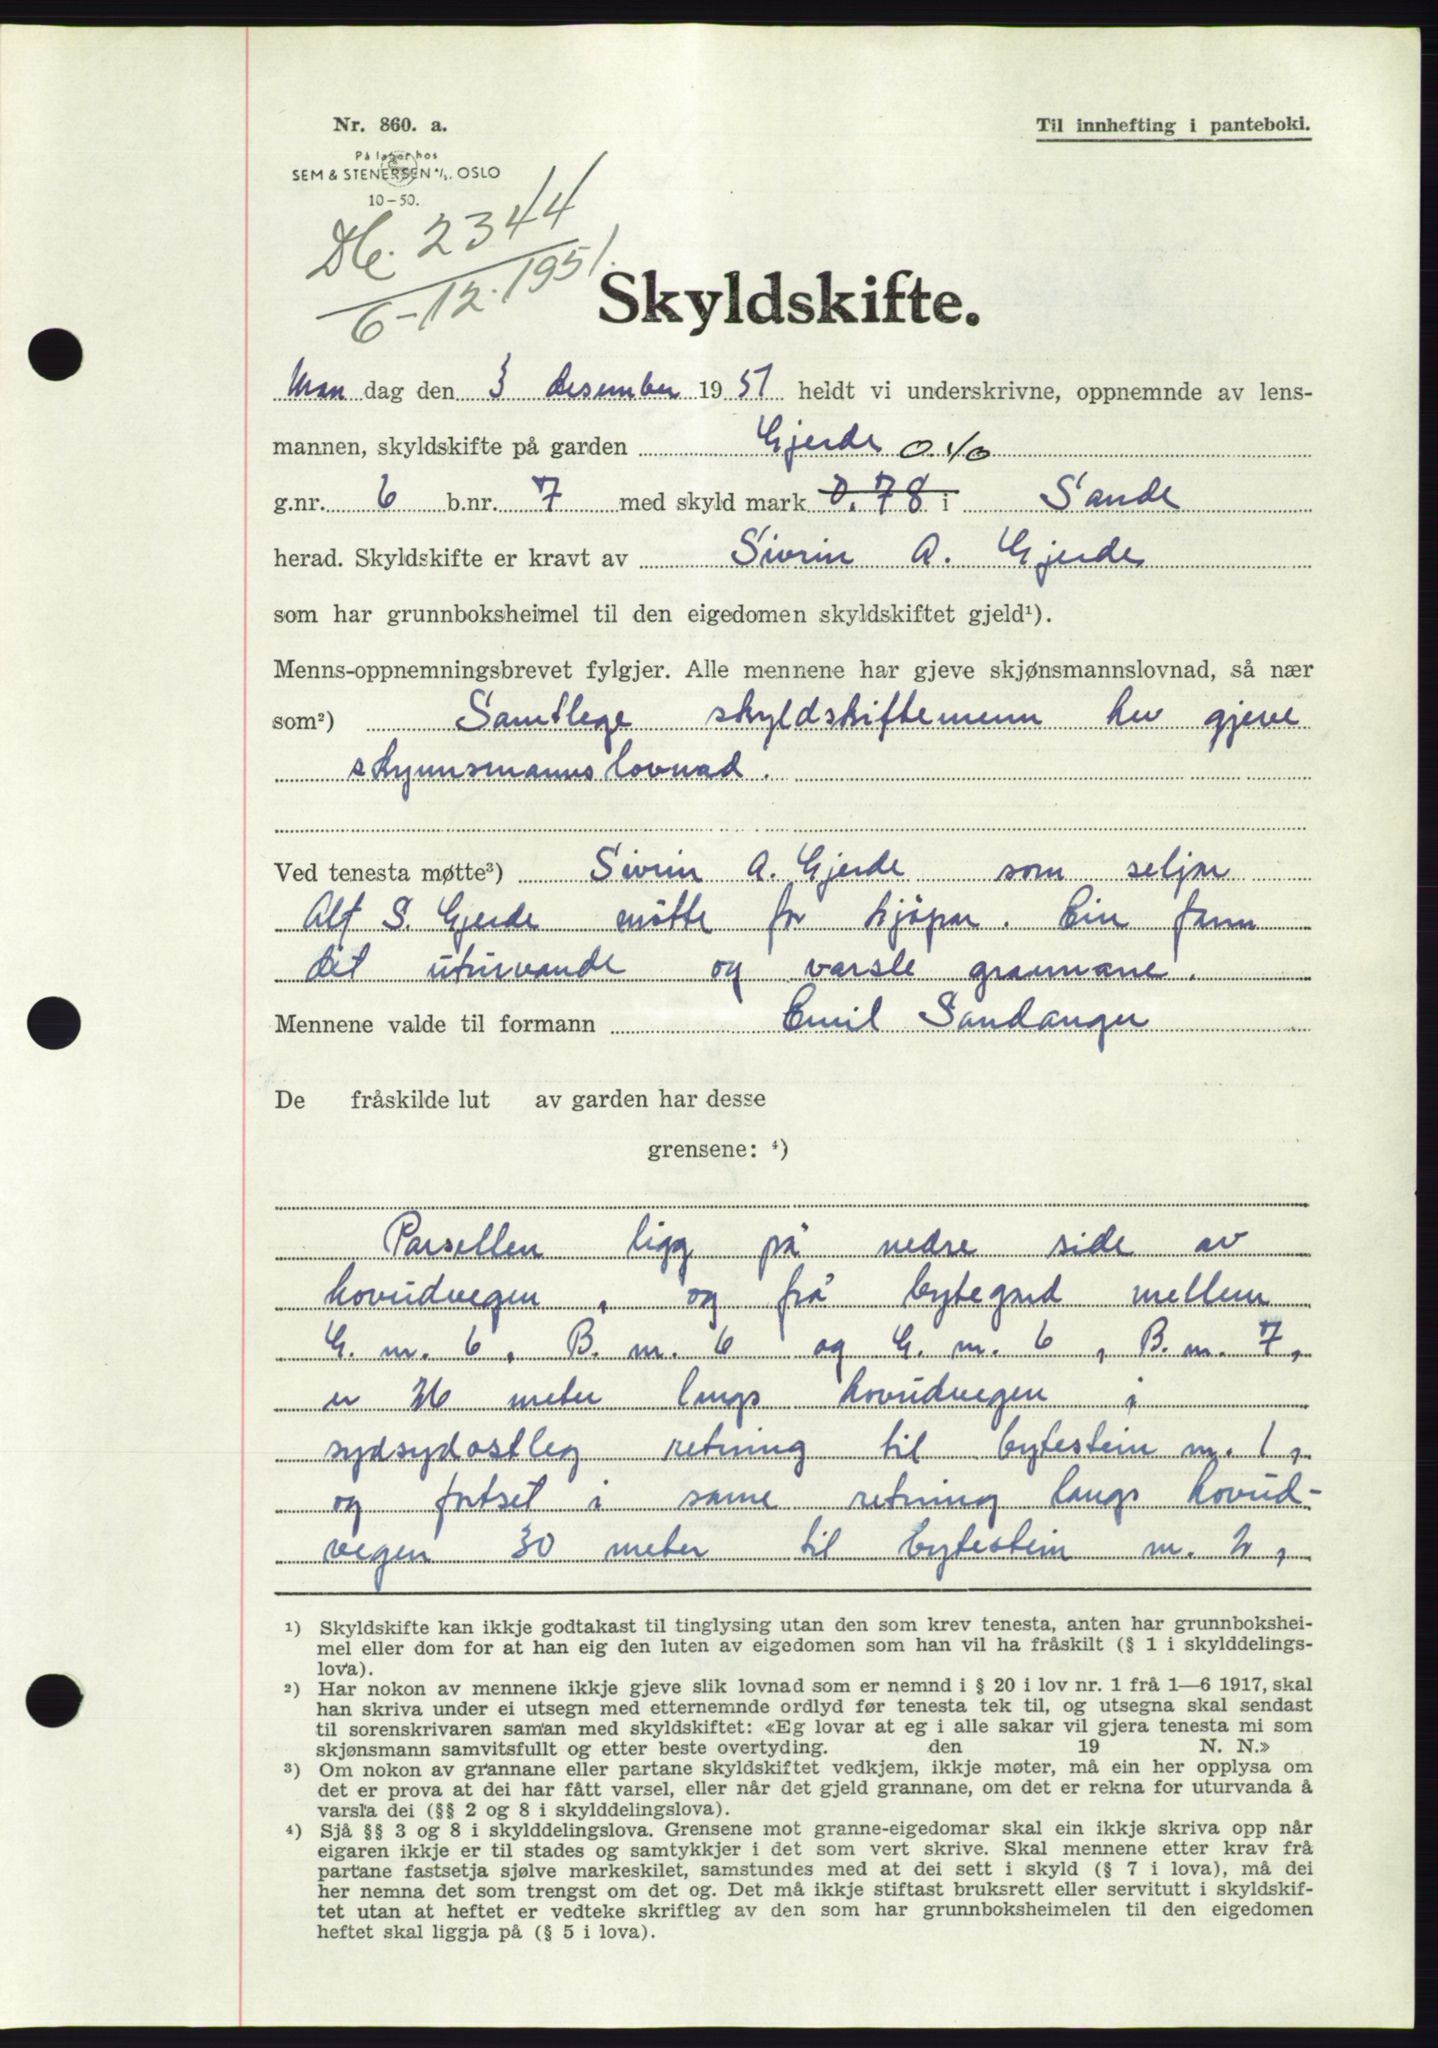 Nr. 860. a.
Til innhefting i panteboki.
På lager hos
SEM & STENERSEN A/S. OSLO
10-50.
Db. 2344
6-12-1951.
Skyldskifte.
Man dag den 3 desember 1951 heldt vi underskrivne, oppnemnde av lens-
mannen, skyldskifte på garden Gjerde 0.10
g.nr. 6 b.nr. 7 med skyld mark 0.78 i Sande
herad. Skyldskifte er kravt av Sivrin A. Gjerde
som har grunnboksheimel til den eigedomen skyldskiftet gjeld¹).
Menns-oppnemningsbrevet fylgjer. Alle mennene har gjeve skjønsmannslovnad, så nær
som²) Samtlege skyldskiftemenn hev gjeve
skjynnsmannslovnad.
Ved tenesta møtte³) Sivrin A. Gjerde som seljar
Alf S. Gjerde møtte for kjøpar. Ein fann
det uturvande og varsle grannane.
Mennene valde til formann Emil Sandanger
De fråskilde lut av garden har desse
grensene: ⁴)
Parsellen ligg på nedre side av
hovudvegen, og frå bytegard mellem
G. nr. 6, B. nr. 6 og G. nr. 6, B. nr. 7,
er meter langs hovudvegen i
sydsydostleg retning til bytestein nr. 1,
og fortset i same retning langs hovud-
vegen 30 meter til bytestein nr. 2,
¹) Skyldskifte kan ikkje godtakast til tinglysing utan den som krev tenesta, anten har grunnbokshei-
mel eller dom for at han eig den luten av eigedomen som han vil ha fråskilt (§ 1 i skylddelings-
lova).
²) Har nokon av mennene ikkje gjeve slik lovnad som er nemnd i § 20 i lov nr. 1 frå 1—6 1917, skal
han skriva under ei utsegn med etternemnde ordlyd før tenesta tek til, og utsegna skal sendast
til sorenskrivaren saman med skyldskiftet: «Eg lovar at eg i alle sakar vil gjera tenesta mi som
skjønsmann samvitsfullt og etter beste overtyding. den 19 N. N.»
³) Om nokon av grannane eller partane skyldskiftet vedkjem, ikkje møter, må ein her opplysa om
det er prova at dei har fått varsel, eller når det gjeld grannane, om det er rekna for uturvanda å
varsla dei (§§ 2 og 8 i skylddelingslova).
⁴) Sjå §§ 3 og 8 i skylddelingslova. Grensene mot granne-eigedomar skal ein ikkje skriva opp når
eigaren ikkje er til stades og samtykkjer i det som vert skrive. Skal mennene etter krav frå
partane fastsetja sjølve markeskilet, samstundes med at dei sett i skyld (§ 7 i lova), må dei
her nemna det som trengst om det og. Det må ikkje stiftast bruksrett eller servitutt i skyldskif-
tet utan at heftet er vedteke skriftleg av den som har grunnboksheimelen til den eigedomen
heftet skal liggja på (§ 5 i lova).